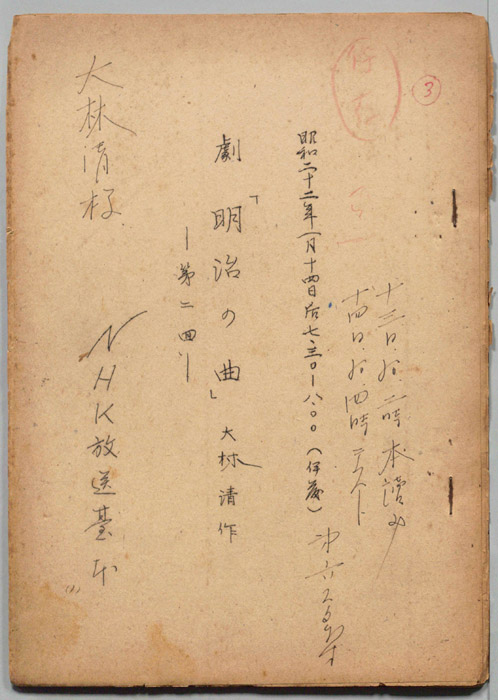 ③
保存
十三日.后.二時 本讀み
十四日.后.四時 テスト
昭和二十二年一月十四日后七.三〇―八.〇〇(伊藤)
劇「明治の曲」大林清作
―第二回―
大林清様
NHK放送臺本